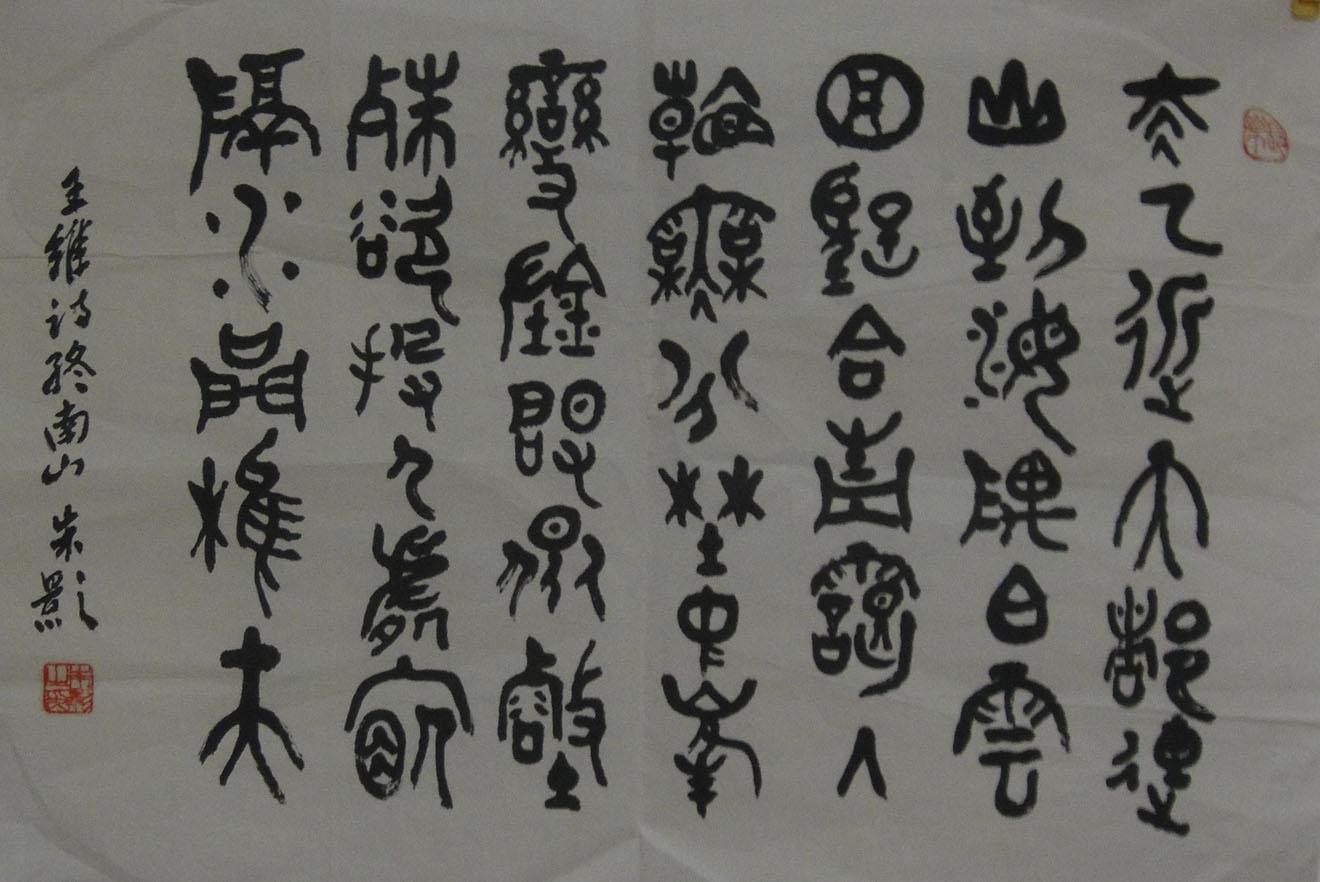 太乙近天都連
山到海隅白雲
回望合青靄入
看無分野中峯
變陰晴眾壑
殊欲投人處宿
隔水問樵夫
王維詩終南山 朱影